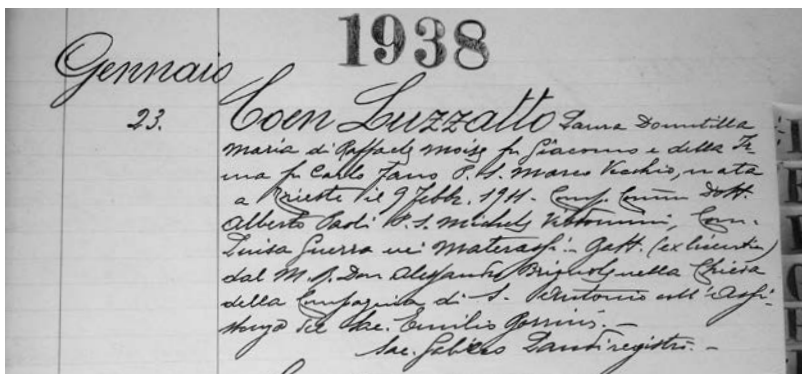 1938
Gennaio
23. Coen Luzzatto Laura Domitilla
Maria di Raffaele Moisè fu Giacomo e della Ir-
ma fu Carlo Fano P. S. Marco Vecchio, nata
a Trieste il 9 Febb. 1911. Conf. Dott.
Alberto Paoli P. S. Michele
Luisa Guerra Materassi Batt. (ex licentia)
dal M. R. Don Alessandro nella Chiesa
della Compagnia di S. coll'assi-
stenza del Sac. Emilio
Sac. registrò.